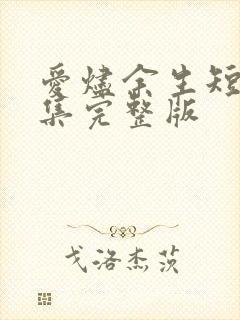 爱烬余生短
集完整版
戈洛杰茨